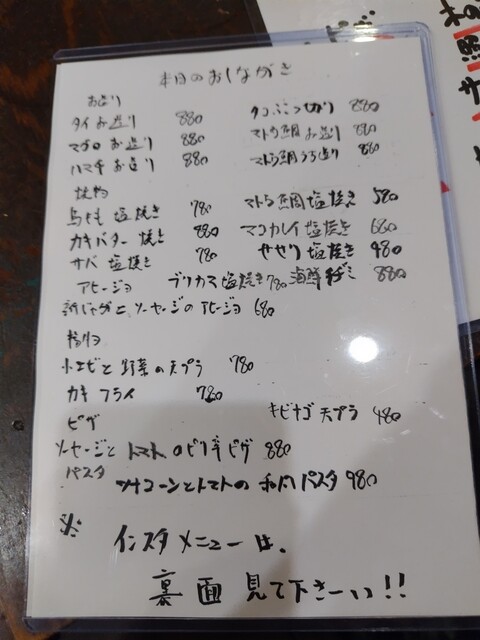 本日のおしながき
お造り
タイお造り 880
タコぶつ切り 880
マグロお造り 880
マトウ鯛お造り 880
ハマチお造り 880
マトウ鯛うす造り 880
焼物
鳥もも塩焼き 780
マトウ鯛塩焼き 580
カキバター焼き 880
マコカレイ塩焼き 680
サバ塩焼き 780
せせり塩焼き 980
アヒージョ
ブリカマ塩焼き 780
海鮮 880
新じゃがとソーセージのアヒージョ 680
揚物
小エビと野菜の天プラ 780
カキフライ 780
キビナゴ天プラ 480
ピザ
ソーセージとトマトのピリ辛ピザ 880
パスタ
ツナコーンとトマトの和風パスタ 980
※インスタメニューは、
裏面見て下さーい!!